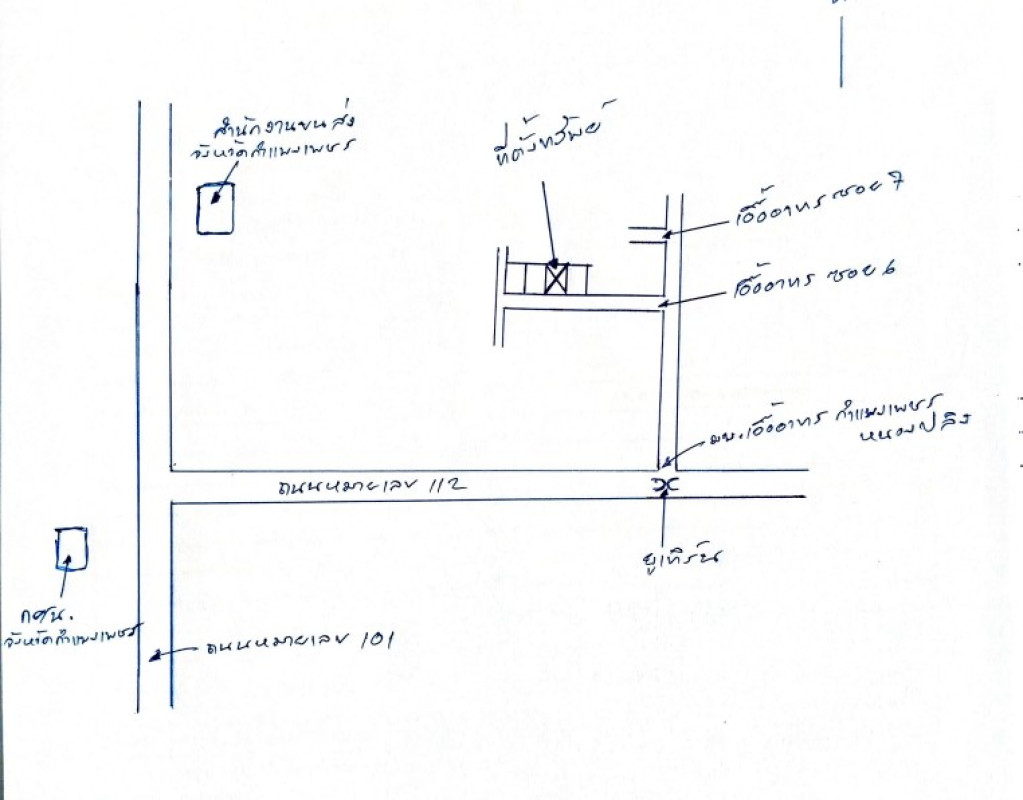 สำนักงานขนส่ง
จังหวัดกำแพงเพชร
ที่ตั้งทรัพย์
เอื้ออาทร ซอย 7
เอื้ออาทร ซอย 6
มบ.เอื้ออาทร กำแพงเพชร
หนองปลิง
ถนนหมายเลข 112
ยูเทิร์น
กศน.
จังหวัดกำแพงเพชร
ถนนหมายเลข 101